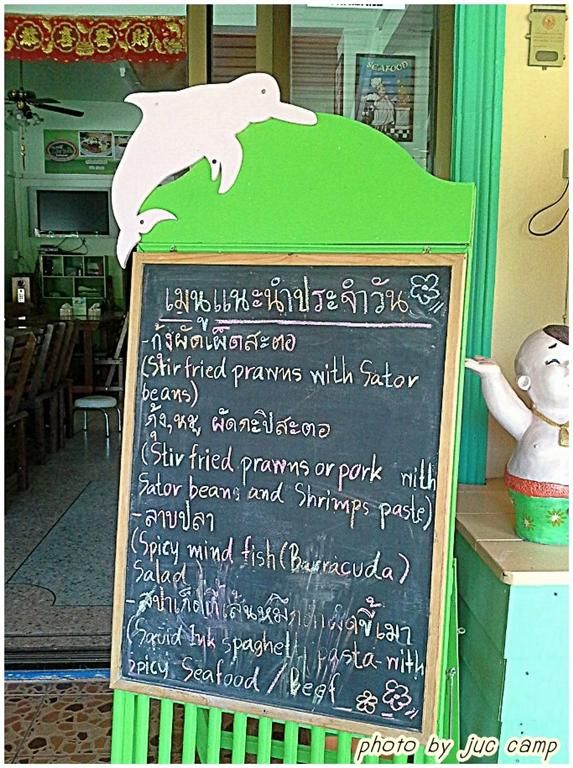 恭喜發財
SEAFOOD
เมนูแนะนำประจำวัน
-กุ้งผัดเผ็ดสะตอ
(Stir fried prawns with Sator
beans)
กุ้ง,หมู ผัดกะปิสะตอ
(Stir fried prawns or pork with
Sator beans and Shrimps paste)
-ลาบปลา
(Spicy mind fish (Barracuda)
Salad)
-สปาเก็ตตี้เส้นหมึก ผัดขี้เมา
(Squid Ink spaghetti pasta with
spicy Seafood / Beef
photo by juc camp